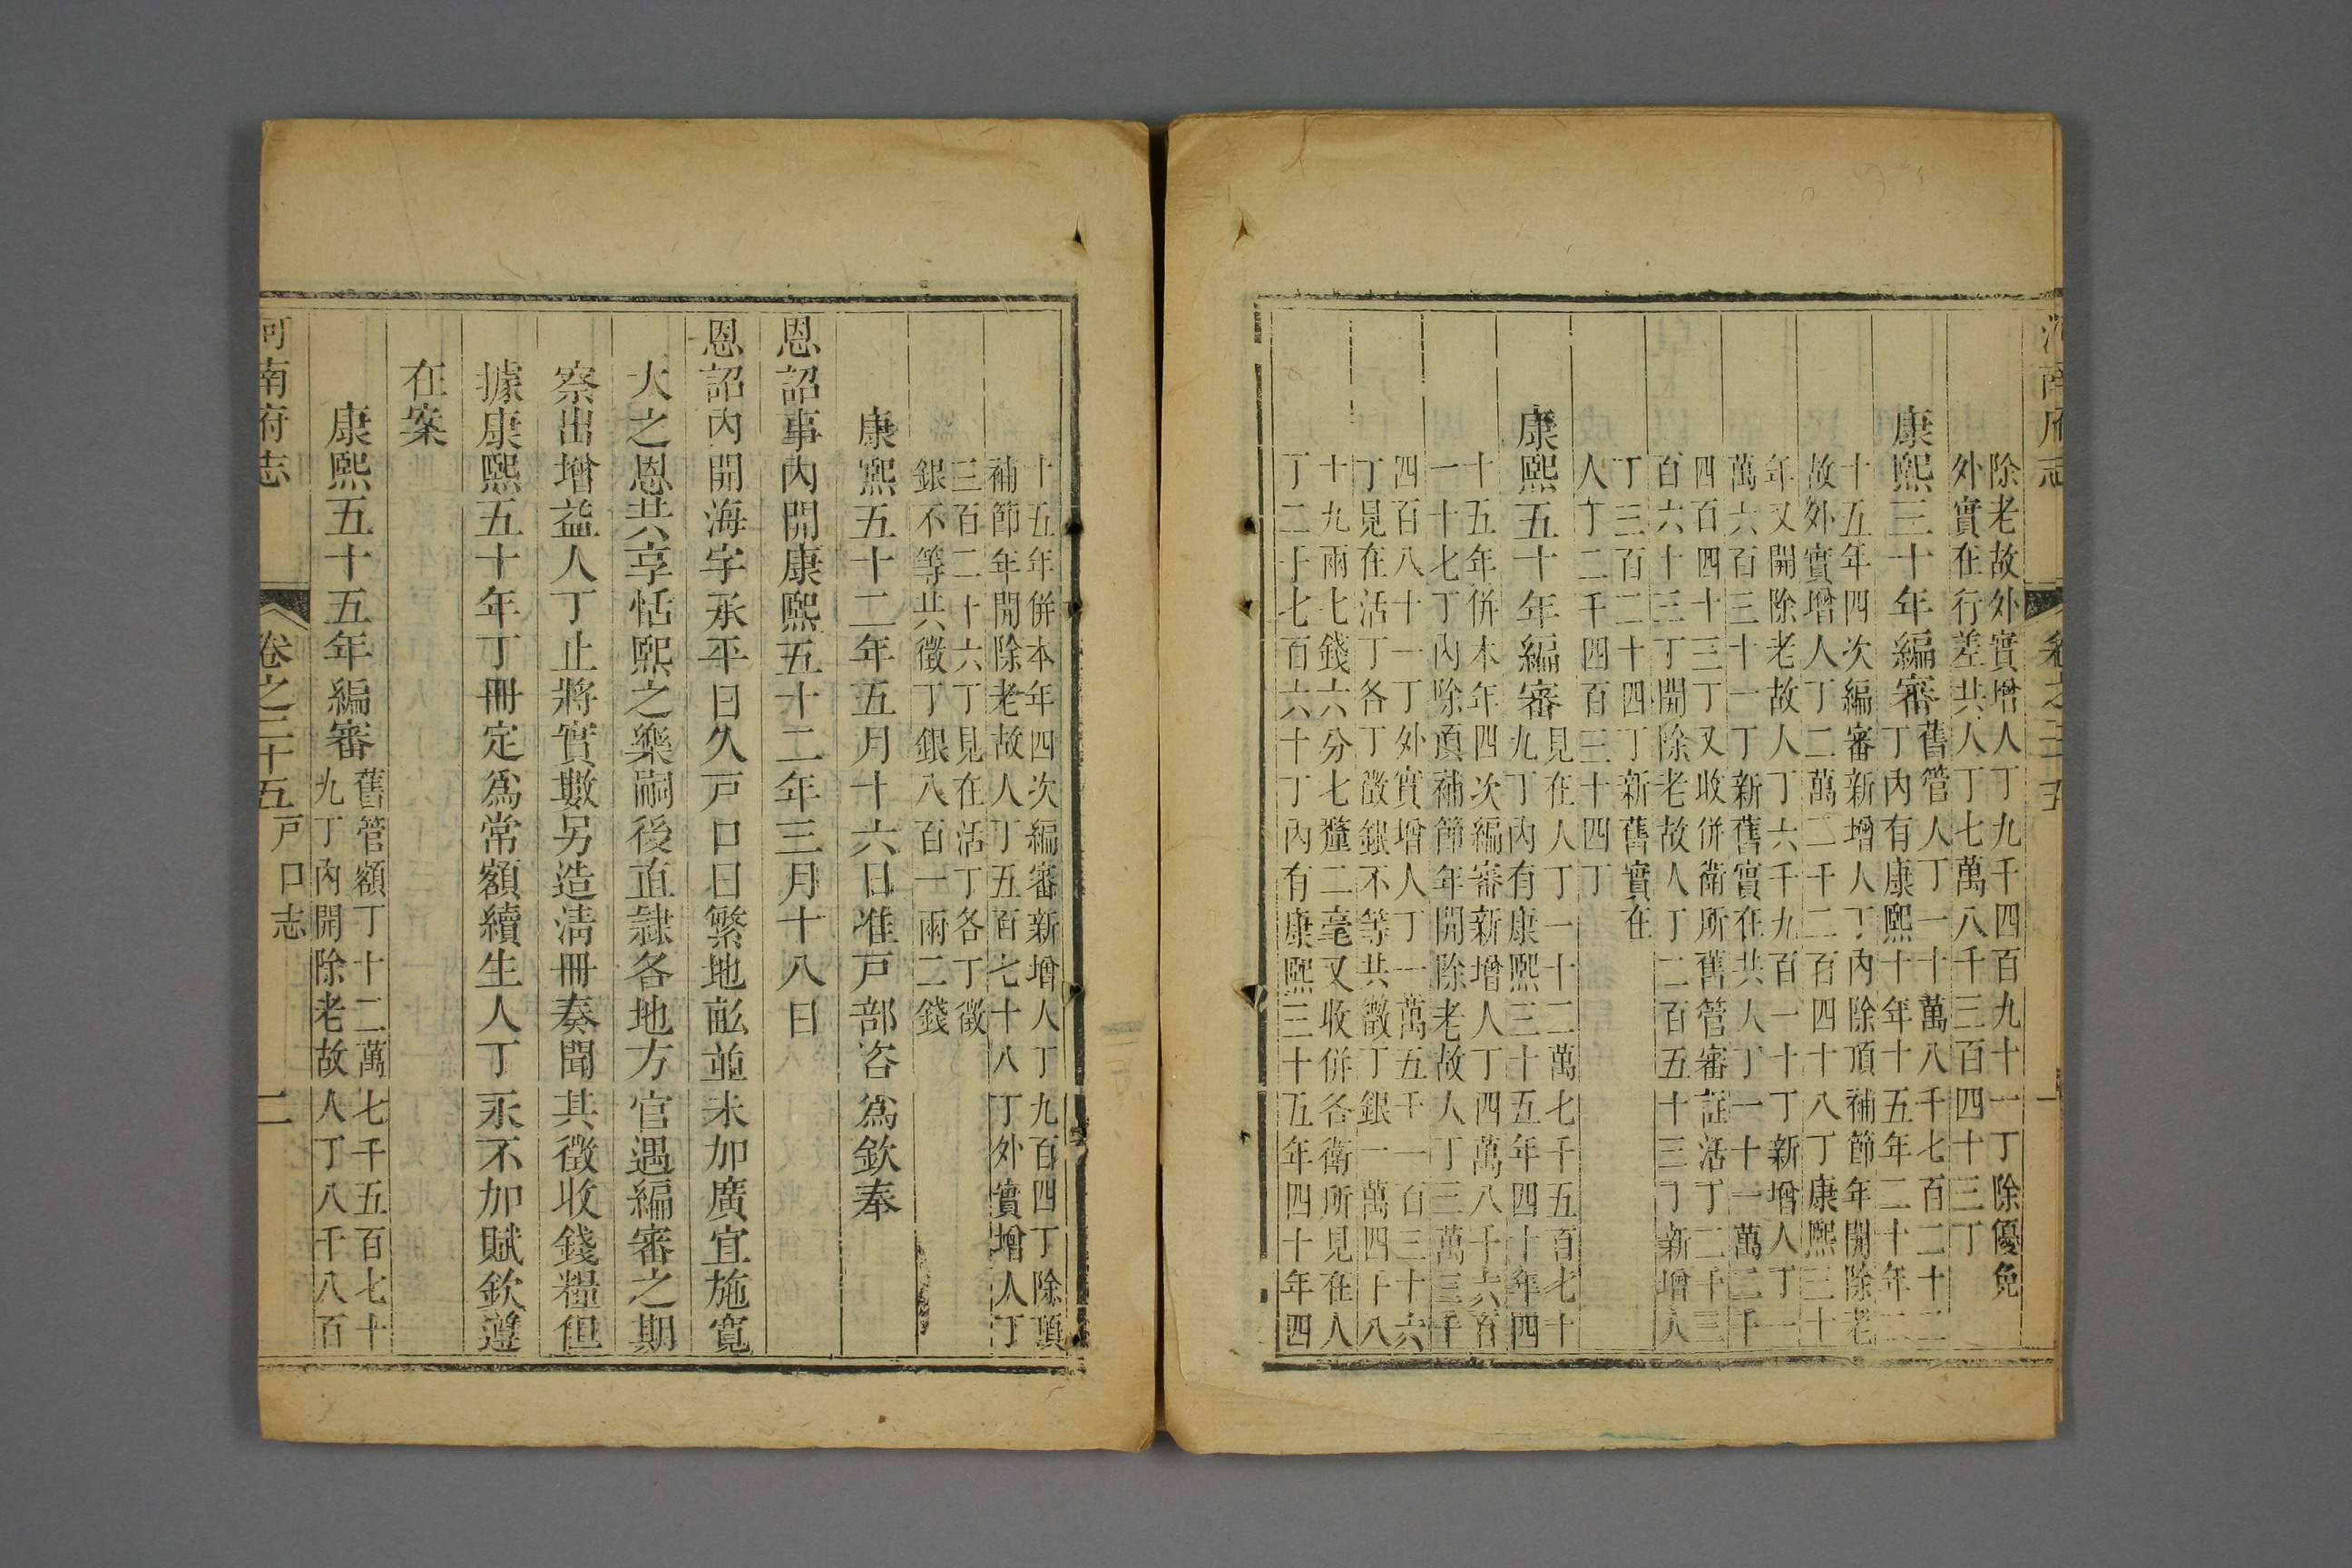 河南府志 卷之三十五 一
除老故外實增人丁九千四百九十一丁除優免
外實在行差共人丁七萬八千三百四十三丁
康熙三十年編審
舊管人丁一十萬八千七百二十二
丁內有康熙十年十五年二十年二
十五年四次編審新增人丁內除頂補節年開除老
故外實增人丁二萬二千二百四十八丁康熙三十
年又開除老故人丁六千九百一十丁新增人丁一
萬六百三十一丁新舊實在共人丁一十一萬二千
四百四十三丁又收併衛所舊管審証活丁二千三
百六十三丁開除老故人丁二百五十三丁新增人
丁三百二十四丁新舊實在
人丁二千四百三十四丁
康熙五十年編審
見在人丁一十二萬七千五百七十
九丁內有康熙三十五年四十年四
十五年併本年四次編審新增人丁四萬八千六百
一十七丁內除頂補節年開除老故人丁三萬三千
四百八十一丁外實增人丁一萬五千一百三十六
丁見在活丁各丁徵銀不等共徵丁銀一萬四千八
十九兩七錢六分七釐二毫又收併各衛所見在人
丁二千七百六十丁內有康熙三十五年四十年四
十五年併本年四次編審新增人丁九百四丁除頂
補節年開除老故人丁五百七十八丁外實增人丁
三百二十六丁見在活丁各丁徵
銀不等共徵丁銀八百一兩二錢
康熙五十二年五月十六日准戸部咨爲欽奉
恩詔事內開康熙五十二年三月十八日
恩詔內開海宇承平日久戸口日繁地畝並未加廣宜施寬
大之恩共享恬熙之樂嗣後直隸各地方官遇編審之期
察出增益人丁止將實數另造清冊奏聞其徵收錢糧但
據康熙五十年丁冊定爲常額續生人丁永不加賦欽遵
在案
康熙五十五年編審
舊管額丁十二萬七千五百七十
九丁內開除老故人丁八千八百
河南府志 卷之三十五 戸口志 二